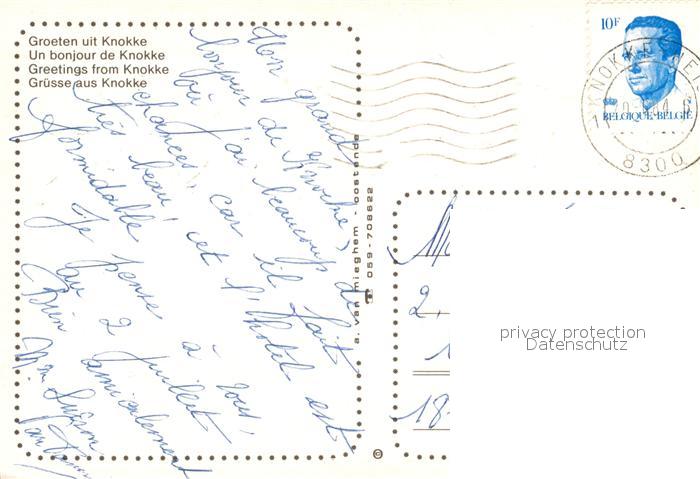 Groeten uit Knokke
Un bonjour de Knokke
Greetings from Knokke
Grüsse aus Knokke
Un grand
bonjour de Knocke,
où j'ai beaucoup de
chances, car il fait
très beau et l'hotel est
formidable
Je pense à vous
au 2 juillet
Bien amicalement
a. van mieghem - oostende
059-708622
©
10F
BELGIQUE-BELGIË
KNOKKE
8300
2.
18
privacy protection
Datenschutz